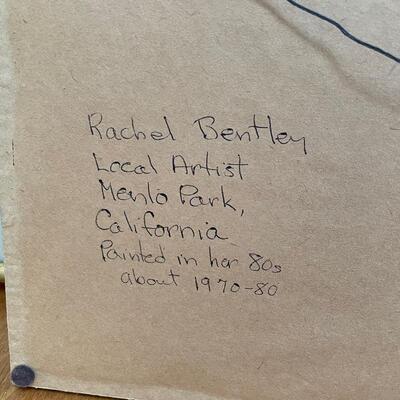 Rachel Bentley
Local Artist
Menlo Park,
California
Painted in her 80s
about 1970-80